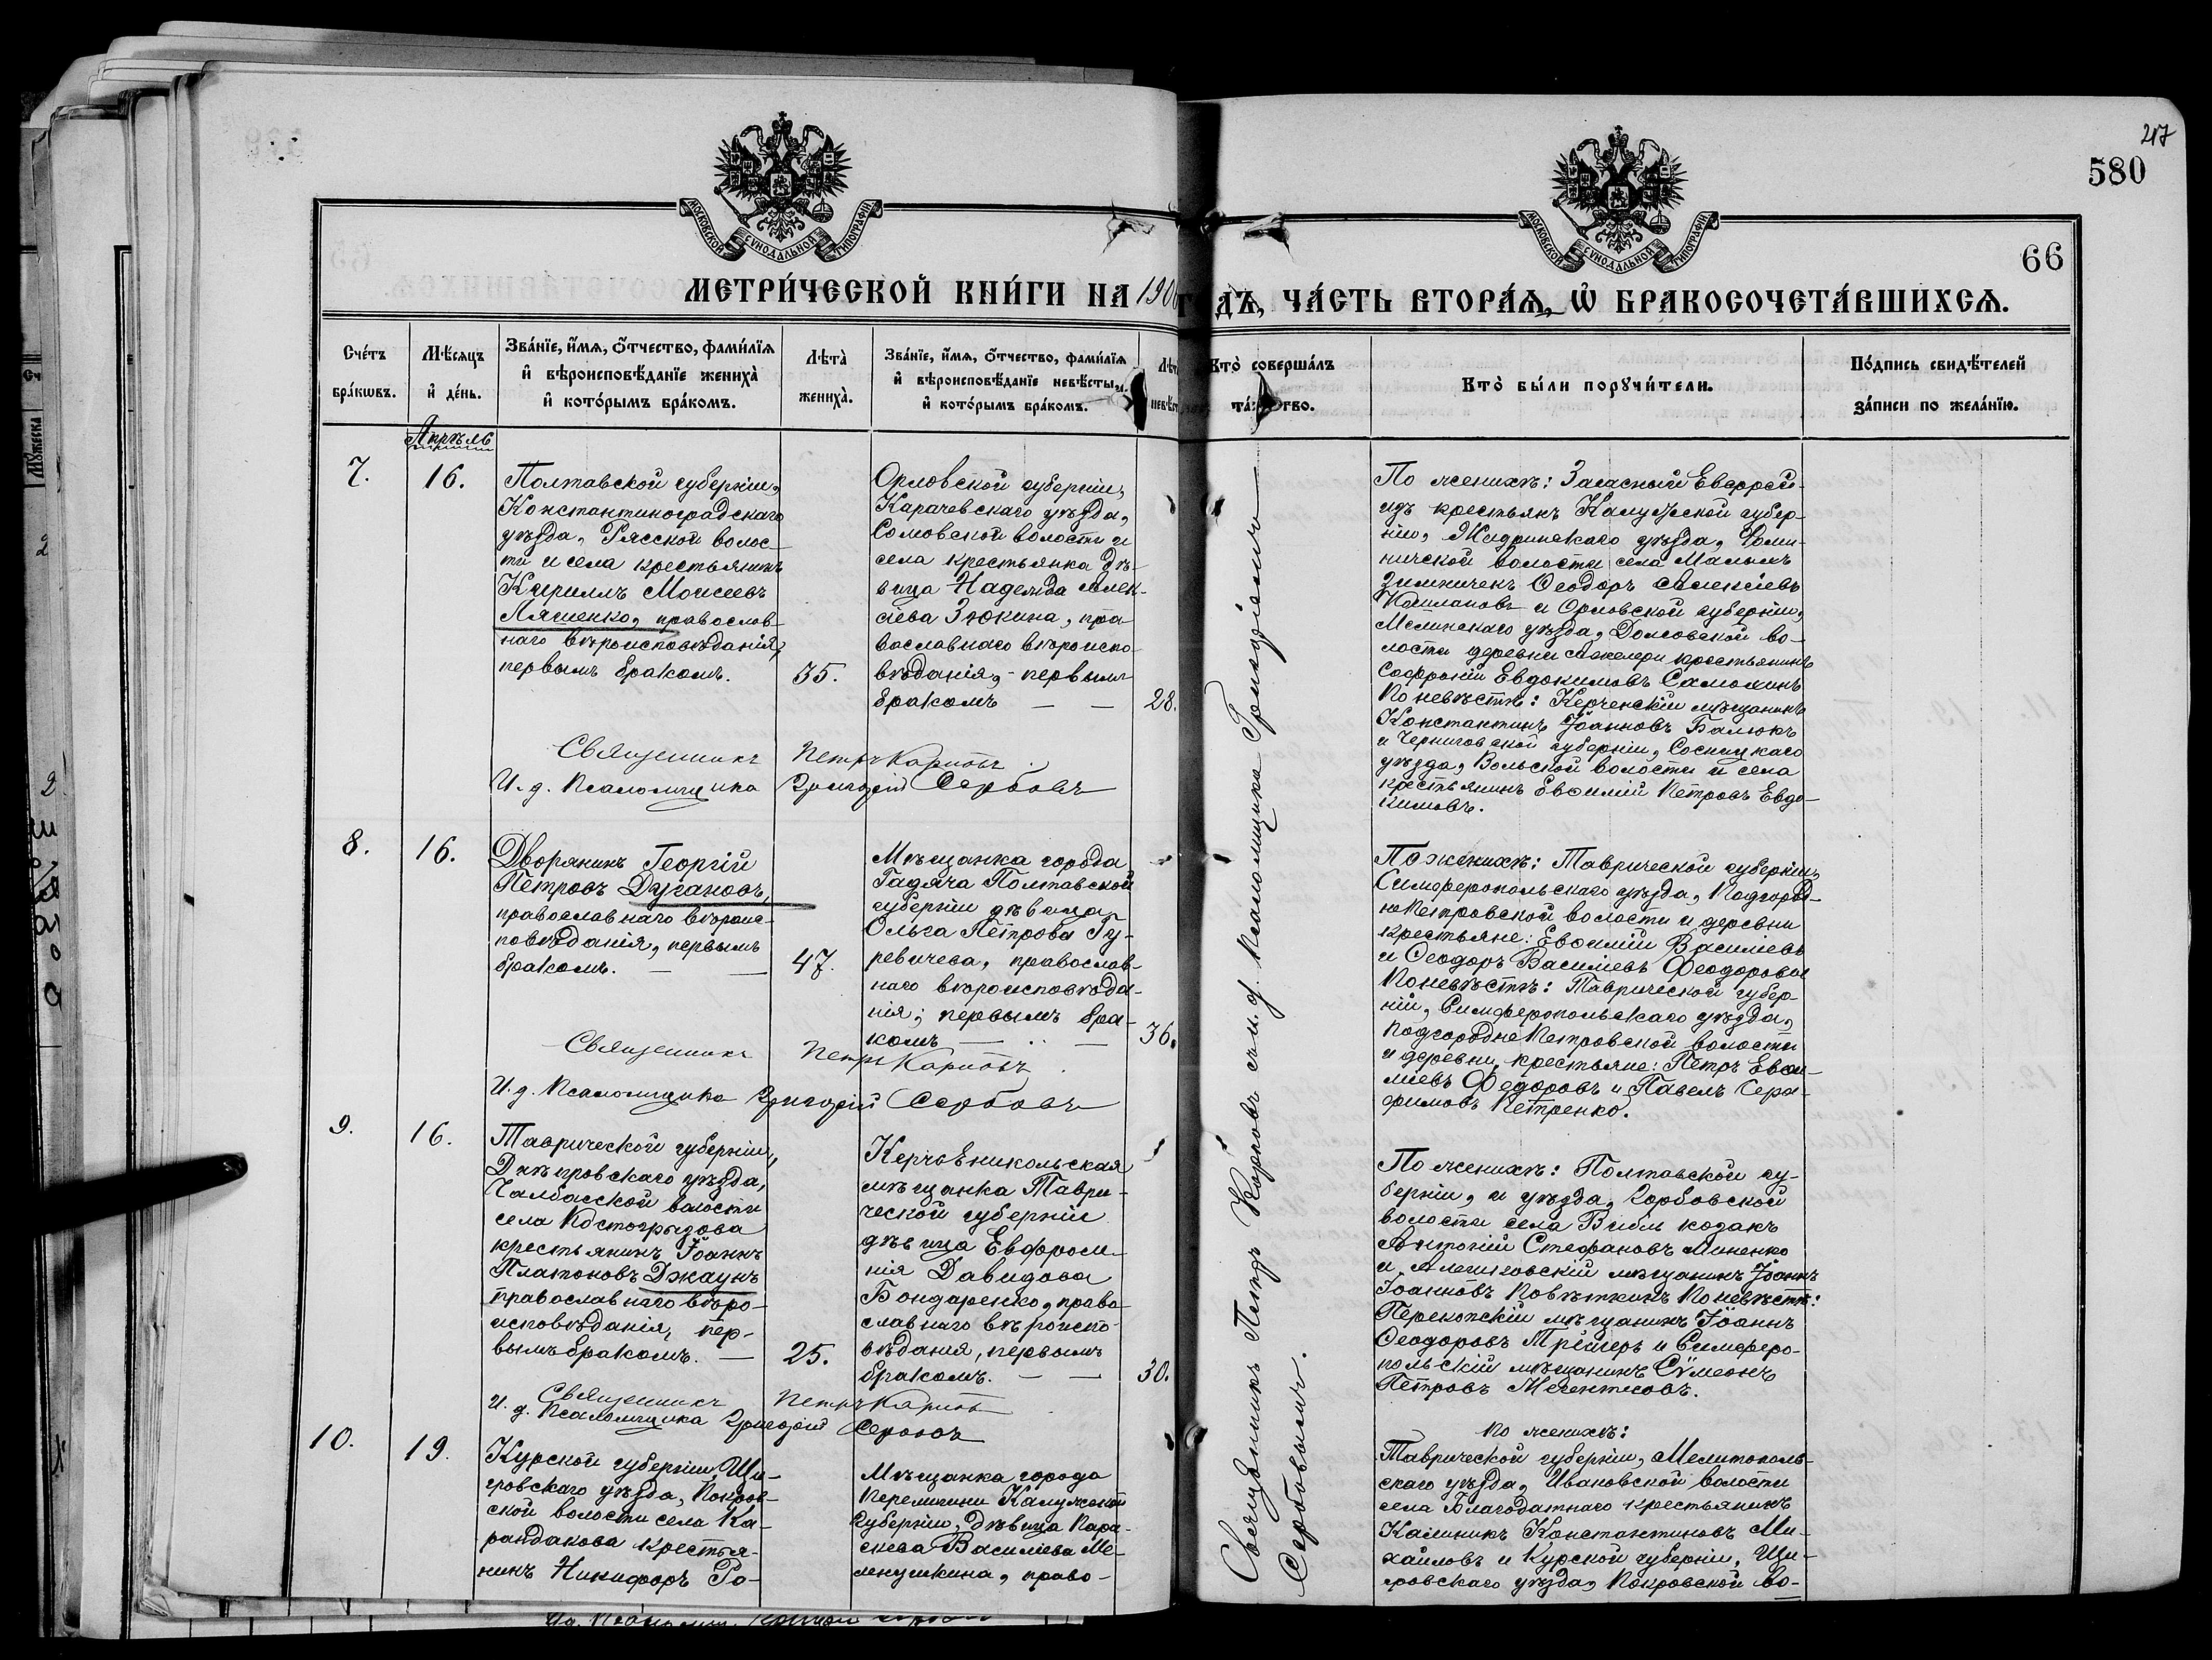 217
580
66
МОСКОВСКОЙ СѴНОДАЛЬНОЙ ТИПОГРАФІИ
МОСКОВСКОЙ СѴНОДАЛЬНОЙ ТИПОГРАФІИ
МЕТРИ́ЧЕСКОЙ КНИ́ГИ НА 190
ГОДЪ, ЧА́СТЬ ВТОРА́Ѧ, Ѡ҆ БРАКОСОЧЕТА́ВШИХСѦ.
Сче́тъ бра́кѡвъ.
Мѣ́сяцъ и҆ де́нь.
Зва́нїе, и҆́мѧ, ѻ҆́тчество, фами́лїѧ
и҆ вѣроисповѣ́данїе жениха̀
и҆ кото́рымъ бра́комъ.
Лѣта̀ жениха̀.
Зва́нїе, и҆́мѧ, ѻ҆́тчество, фами́лїѧ
и҆ вѣроисповѣ́данїе невѣ́сты
и҆ кото́рымъ бра́комъ.
Кто̀ соверша́лъ
Кто̀ бы́ли порꙋчи́тели.
По́дпись свидѣ́телей
за́писи по жела́нїю.
Апрѣль
7.
16.
Полтавской губерніи,
Константиноградскаго
уѣзда, Рясской волос-
ти и села крестьянинъ
Кириллъ Моисеевъ
Ляшенко, православ-
наго вѣроисповѣданія,
первымъ бракомъ.
35.
Орловской губерніи,
Карачевскаго уѣзда,
Сомовской волости и
села крестьянка дѣ-
вица Надежда Алек-
сіева Зюкина, пра-
вославнаго вѣроиспо-
вѣданія, - первымъ
бракомъ — —
28.
По женихѣ: Запасный Ефрей-
идъ крестьянъ Калужской губер-
ніи, Жиздринскаго уѣзда,
волости села Малыхъ
Ѳеодоръ Алексіевъ
и Орловской губерніи,
уѣзда, во-
лости деревни крестьянинъ
Софроній Евдокимовъ Самохинъ
По невѣстѣ: Керченскій мѣщанинъ
Константинъ Іоанновъ Балюкъ
и Черниговской губерніи, Сосницкаго
уѣзда, Вольской волости и села
крестьянинъ Евѳимій Петровъ Евдо-
кимовъ.
Священникъ Петръ Карповъ.
И. д. Псаломщика Григорій Сербовъ
8.
16.
Дворянинъ Георгій
Петровъ Дугановъ,
православнаго вѣроис-
повѣданія, первымъ
бракомъ. — —
47.
Мѣщанка города
Гадяча Полтавской
губерніи дѣвица
Ольга Петрова Гу-
ревичева, православ-
наго вѣроисповѣда-
нія; первымъ бра-
комъ — —
36.
По женихѣ: Таврической губерніи,
Симферопольскаго уѣзда, Подгород-
не Петровской волости и деревни
крестьяне: Евѳимій Василіевъ
и Ѳеодоръ Василіевъ Ѳеодоровы
По невѣстѣ: Таврической губер-
ніи, Симферопольскаго уѣзда,
Подгородне Петровской волости
и деревни, крестьяне: Петръ Евѳи-
міевъ Ѳедоровъ и Павелъ Сера-
фимовъ Петренко.
Священникъ Петръ Карповъ.
И. д. Псаломщика Григорій Сербовъ
9.
16.
Таврической губерніи,
Днѣпровскаго уѣзда,
Чалбасской волости
села Костогрызова
крестьянинъ Іоаннъ
Платоновъ Джаунъ
православнаго вѣро-
исповѣданія, пер-
вымъ бракомъ. —
25.
КерчьЕникольская
мѣщанка Таври-
ческой губерніи
дѣвица Евфроси-
нія Давидова
Бондаренко, право-
славнаго вѣроиспо-
вѣданія, первымъ
бракомъ. — —
30.
По женихѣ: Полтавской гу-
берніи, и уѣзда, Горбовской
волости села козакъ
Антоній Стефановъ Миненко
и Алешковскій мѣщанинъ Іоаннъ
Іоанновъ Повѣткинъ По невѣстѣ:
Перекопскій мѣщанинъ Іоаннъ
Ѳеодоровъ и Симферо-
польскій мѣщанинъ Сѵмеонъ
Петровъ
Священникъ Петръ Карповъ
И. д. Псаломщика Григорій Сербовъ
10.
19.
Курской губерніи, Щи-
гровскаго уѣзда, Покров-
ской волости села Ка-
рандакова крестья-
нинъ Никифоръ Ро-
Мѣщанка города
Перемышля Калужской
губерніи, дѣвица Пара-
скева Василіева Ме-
ленушкина, право-
По женихѣ:
Таврической губерніи, Мелитополь-
скаго уѣзда, Ивановской волости
села Благодатнаго крестьянинъ
Калиникъ Константиновъ Ми-
хайловъ и Курской губерніи, Щи-
гровскаго уѣзда, Покровской во-
Священникъ Петръ Карповъ съ и. д. Псаломщика Григоріемъ
Сербовымъ.